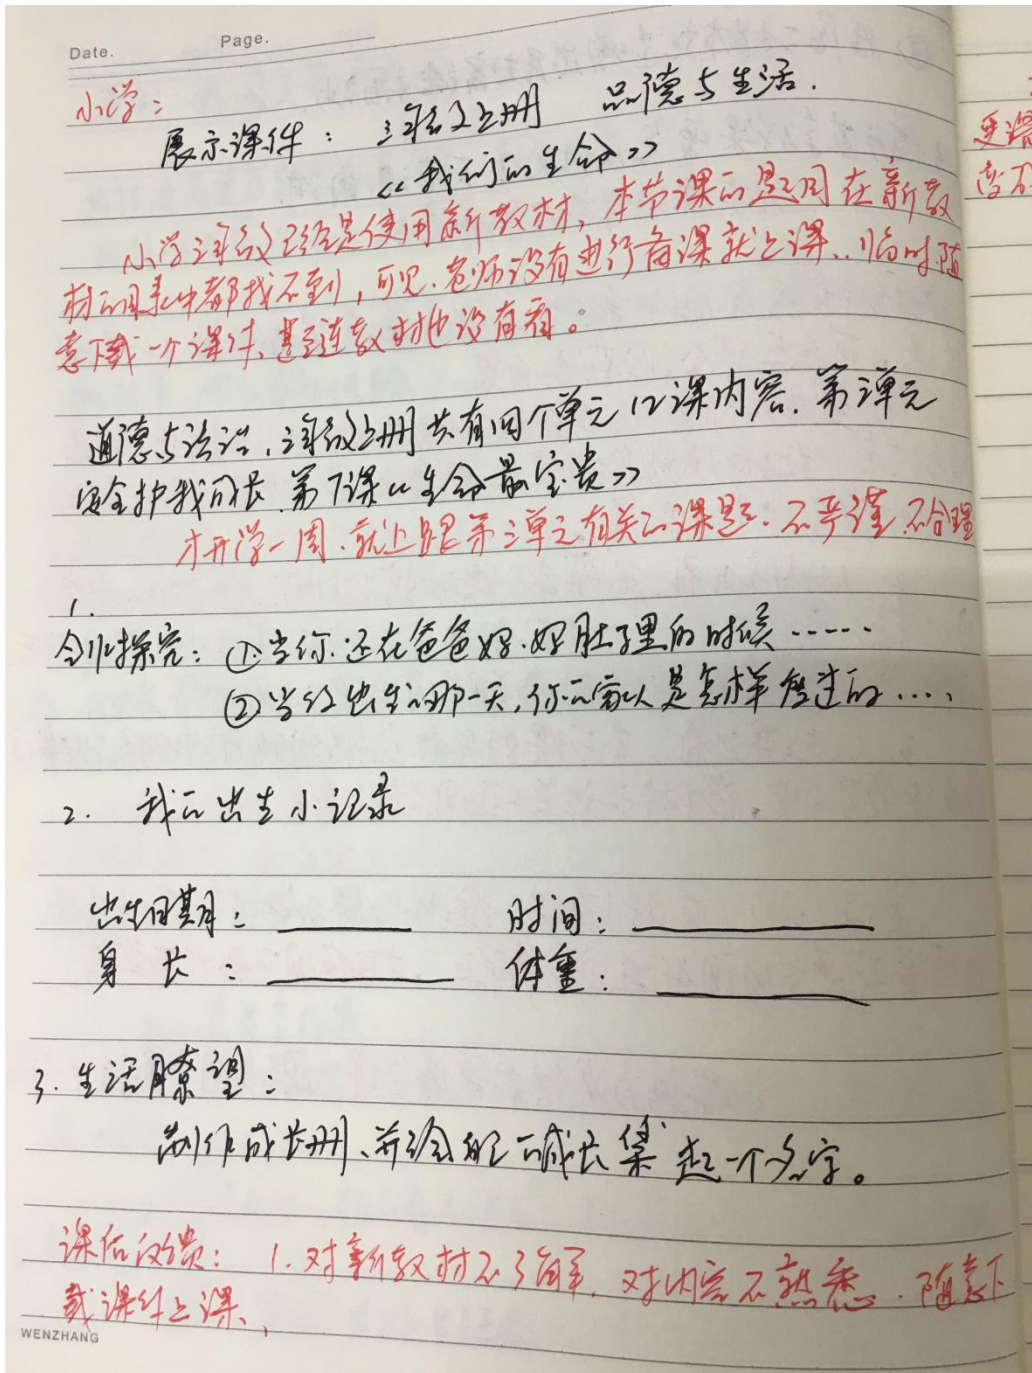 Date. Page.
小学：
展示课件： 三年级上册 品德与生活.
《我们的生命》
小学三年级已经是使用新教材，本节课的题目在新教
材的目录中都找不到，可见、老师没有进行备课就上课、临时随
意下载一个课件、甚至连教材也没有看。
道德与法治，三年级上册共有四个单元12课内容. 第三单元
安全护我成长 第7课《生命最宝贵》
才开学一周、就上跟第三单元有关的课题、不严谨 不合理
1.
合作探究：①当你还在爸爸妈妈肚子里的时候……
②当你出生的那一天，你的家人是怎样度过的….
2. 我的出生小记录
出生日期： 时间：
身 长 ： 体重：
3. 生活瞭望：
制作成长册、并给自己的成长集起一个名字。
课后反馈： 1. 对新教材不了解，对内容不熟悉. 随意下
载课件上课、
WENZHANG